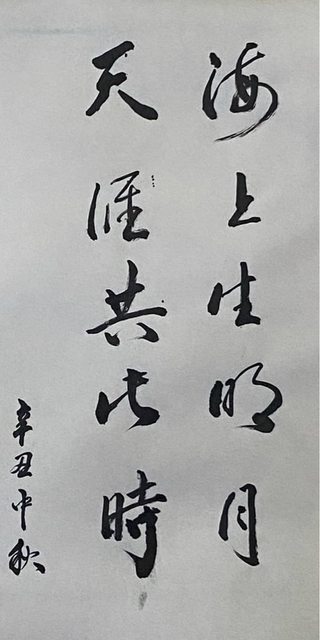 海上生明月
天涯共此時
辛丑中秋